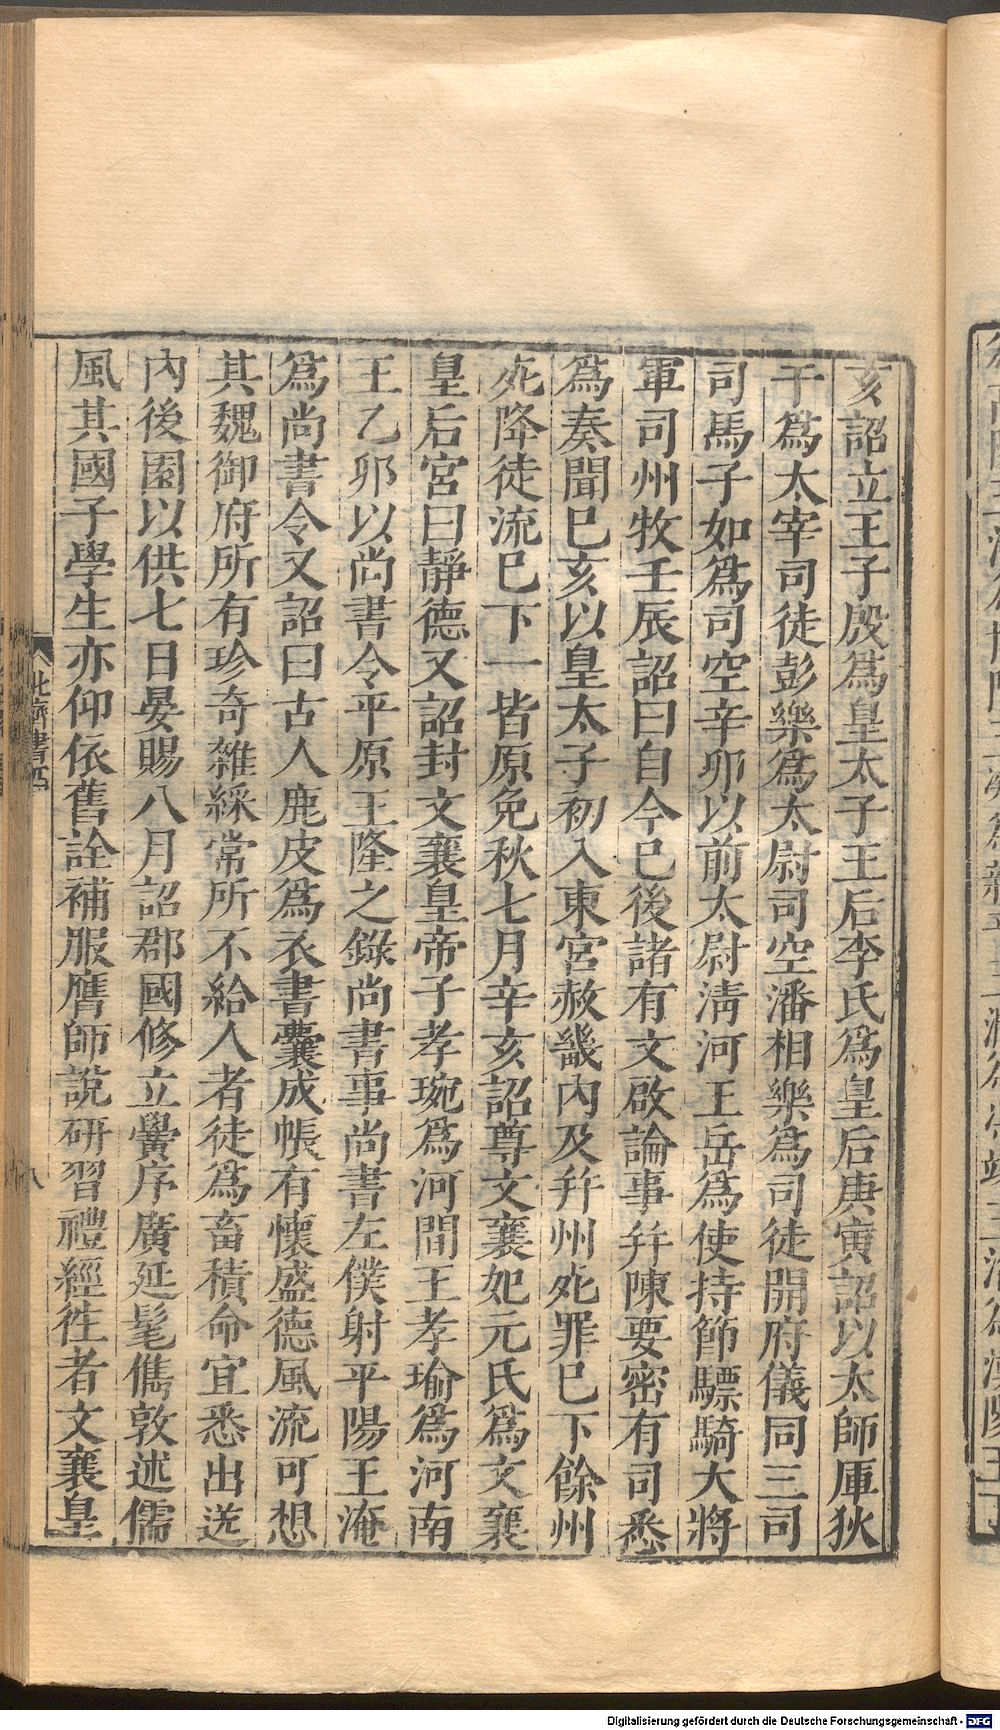 亥詔立王子殷爲皇太子王后李氏爲皇后庚寅詔以太師厙狄
干爲太宰司徒彭樂爲太尉司空潘相樂爲司徒開府儀同三司
司馬子如爲司空辛卯以前太尉淸河王岳爲使持節驃騎大將
軍司州牧壬辰詔曰自今已後諸有文啟論事幷陳要密有司悉
爲奏聞巳亥以皇太子初入東宮赦畿内及幷州死罪巳下餘州
死降徒流巳下一皆原免秋七月辛亥詔尊文襄妃元氏爲文襄
皇后宮曰靜德又詔封文襄皇帝子孝琬爲河間王孝瑜爲河南
王乙卯以尚書令平原王隆之錄尚書事尚書左僕射平陽王淹
爲尚書令又詔曰古人鹿皮爲衣書囊成帳有懷盛德風流可想
其魏御府所有珍奇雜綵常所不給人者徒爲畜積命宜悉出送
內後園以供七日宴賜八月詔郡國修立黌序廣延髦儁敦述儒
風其國子學生亦仰依舊詮補服膺師說硏習禮經徃者文襄皇
北齊書四
八
Digitalisierung gefördert durch die Deutsche Forschungsgemeinschaft - DFG